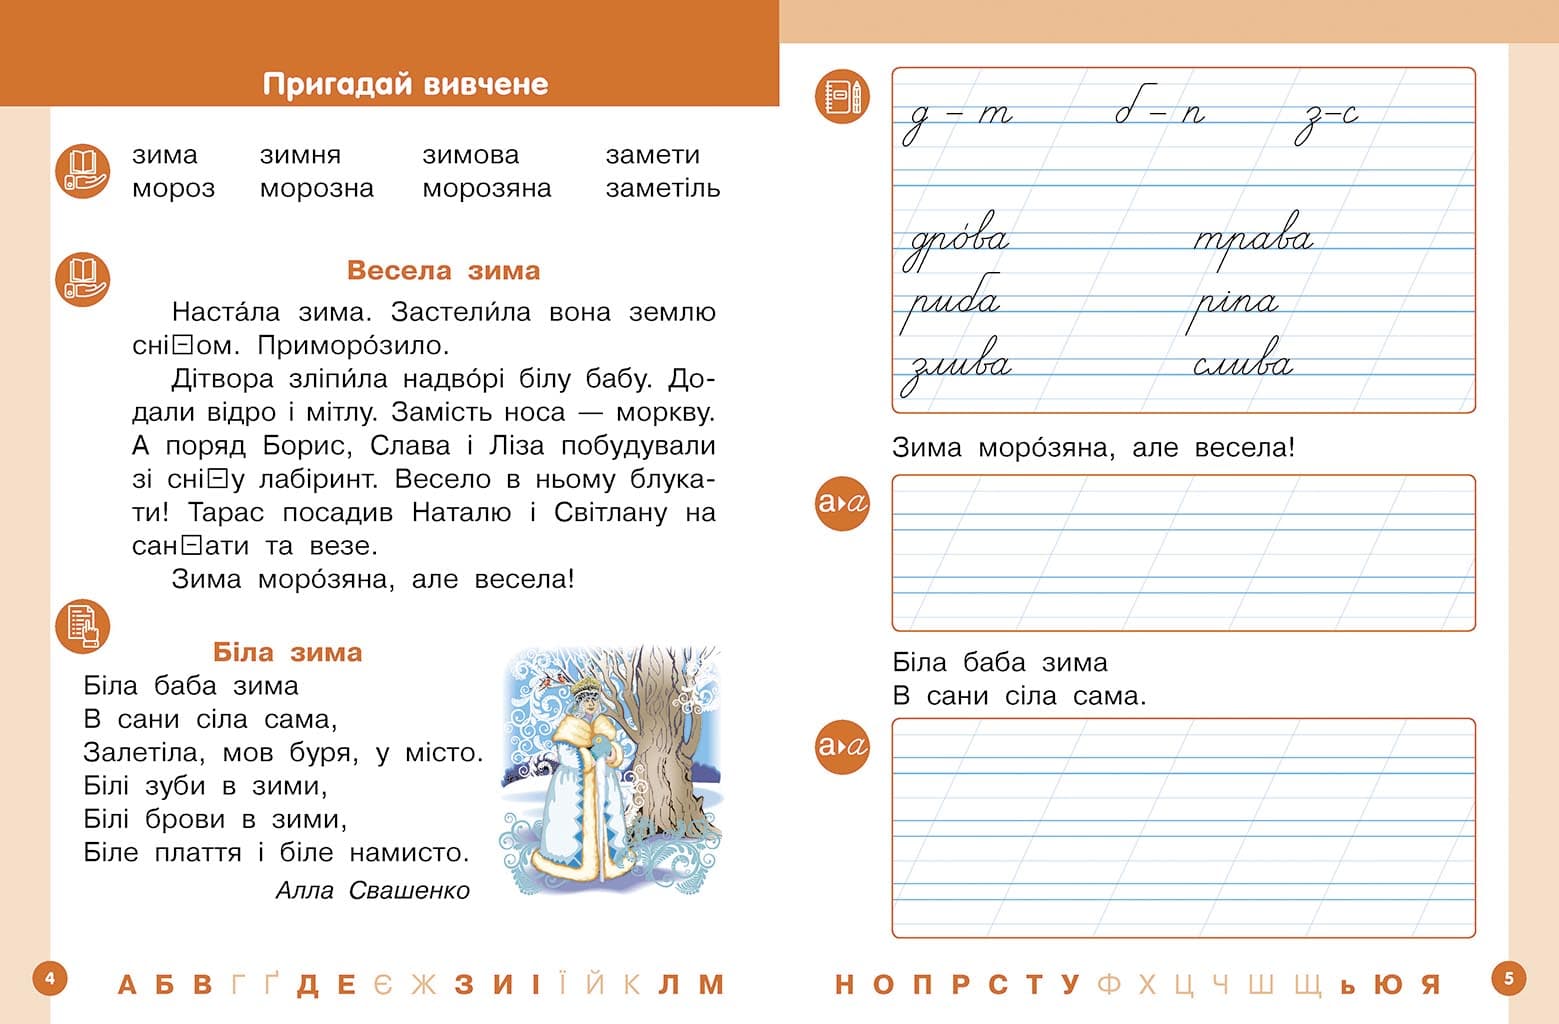 Пригадай вивчене
зима зимня зимова замети
мороз морозна морозяна заметіль
Весела зима
Наста́ла зима. Застели́ла вона землю
сні⊟ом. Приморо́зило.
Дітвора зліпи́ла надво́рі білу бабу. До-
дали відро і мітлу. Замість носа — моркву.
А поряд Борис, Слава і Ліза побудували
зі сні⊟у лабіринт. Весело в ньому блука-
ти! Тарас посадив Наталю і Світлану на
сан⊟ати та везе.
Зима моро́зяна, але весела!
Біла зима
Біла баба зима
В сани сіла сама,
Залетіла, мов буря, у місто.
Білі зуби в зими,
Білі брови в зими,
Біле плаття і біле намисто.
Алла Свашенко
4
А Б В Г Ґ Д Е Є Ж З И І Ї Й К Л М
д – т б – п з–с
дро́ва трава
риба ріпа
злива слива
Зима моро́зяна, але весела!
а а
Біла баба зима
В сани сіла сама.
а а
Н О П Р С Т У Ф Х Ц Ч Ш Щ ь Ю Я
5